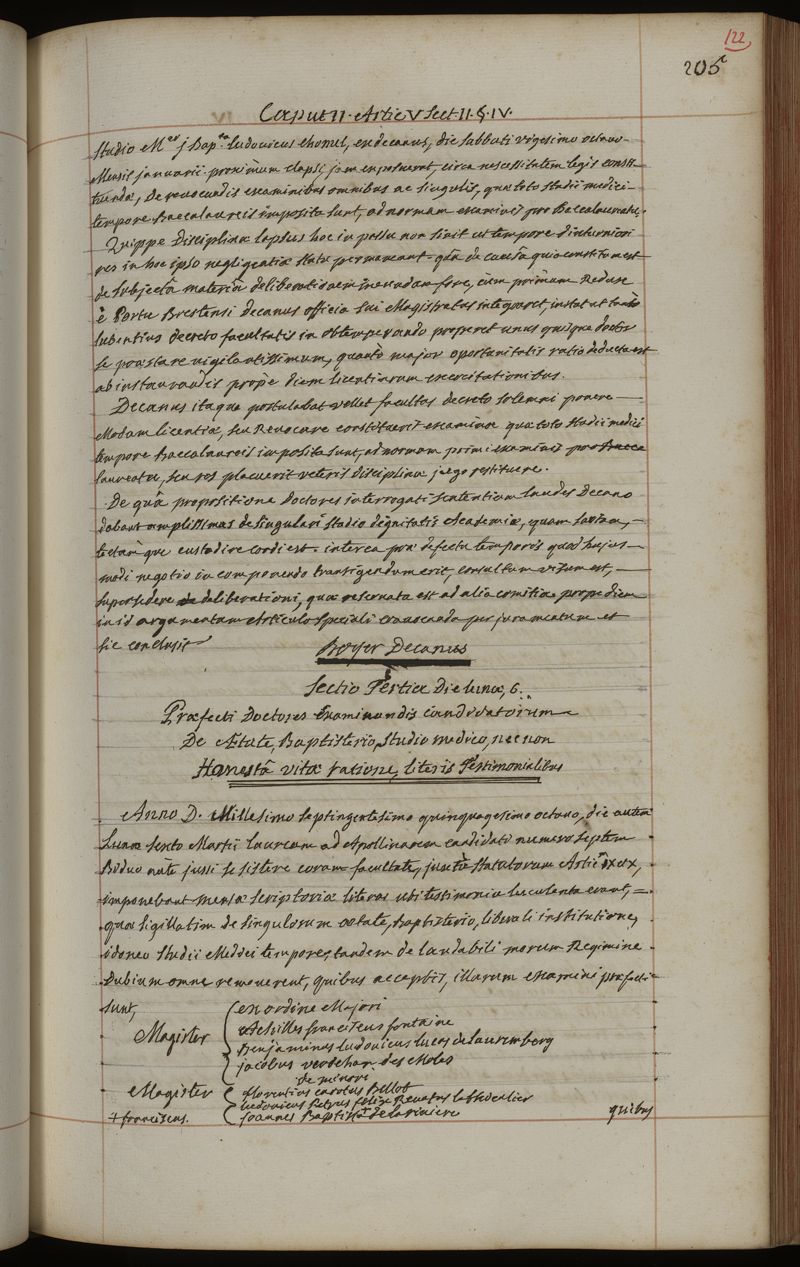 122
205
Caput II. Artic V Sect II. §. IV.
Studio M.er j Bap.ta ludovicus chomel, exdecanus, die sabbati vigesimo octavo
Mensis januarii proximum elapsi, jam exposuerat, circa necessitatem legis consti-
tuendæ, De revocandis examinibus omnibus ac singulis, quæ toto studii medici
tempore Baccalaureis imposita sunt, ad normam examinis pro Baccalaureatu.
Quippe Disciplinæ lapsus hoc in passu non sinit ut tempore diuturniori
res in hoc ipso negligentiæ statu permaneant. qûa de causâ quia constitum est
de subjectâ materiâ deliberationem ineundam fore, cùm primùm Redux
è Portu Brestensi Decanus officia sui Magistratus integraret, instat ut tantò
lubentius decreto facultatis in obtemperando properet unus quisque doctor
se præstare vigilantissimum, quantò major oportunitatis ratio deducta est
ab instaurandis propè diem licentiarum exercitationibus.
Decanus itaque postulabat vellet facultas decreto solemni ponere
Modum licentiæ, seu Revocare constituerit examinæ quæ toto studii medici
tempore baccalaureis imposita sunt, ad normam primi examinis pro Bacca
laureatu, seu ros placuerit veteris disciplinæ jugo restituere.
De quâ propositione Doctores interrogati sententiam laudes Decano
dabant amplissimas de singulari studio dignitatis Academiæ, quam sartam,
tectam que custodire cordi est. interea præ defectu temporis quod hujus
modi negotio in componendo transigendum erit, consultum visum est,
supersedere deliberationi, quæ reservata est ad alia comitia propediem
in id argumentum Articulo speciali convocanda per juramentum et
sic conclusit
Boyer Decanus
Sectio Tertia Die lunæ, 6.
Præfecti Doctores Examinandis candidatorum
De Ætate, Baptisterio, Studio medico, necnon
Honestâ vitæ ratione, literis Testimonialibus
Anno D. Millesimo septingentesimo quinquagesimo octavo, die autem
Lunæ sexto Martii lauream ad Apollinarem candidati numero septem
Biduo antè jussi se sistere coram facultate, juxtà statutorum Artic. IX et X,
imponebant mensæ scriptoriæ literas ubi testimonia luculenta erant,
quæ sigillatim de singulorum ætate, baptisterio, liberali institutione,
idoneo studii Medici tempore, tandem de laudabili morum Regimine
Dubium omne removerent, quibus acceptis, illarum examini præfecti
sunt,
ex ordine Majori
Magister
Achilles franciscus fontaine
Benjaminus ludovicus lucas de lauremberg
jacobus verdelhan des Moles
de minori
Magister
florentius carolus Bellot
ludovicus Petrus felix Renatus le thieullier
+ franciscus.
joannes Baptista de la riviere
quibus